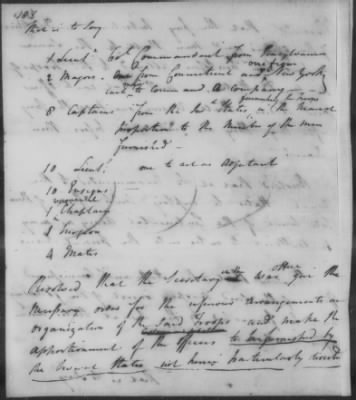 103
that is to say
1 Lieut. Col. Commandant from Pennsylvania
2 Majors. One from Connecticut and one from New York
each to command a Company
8 Captains from the States in the nearest
proportion to the Number of the men
furnished
10 Lieuts. one to act as Adjutant
10 Ensigns
1 Chaplain
1 Surgeon
4 Mates
Resolved That the Secretary in the War office give the
necessary orders for the arrangements and
organization of the said Troops and make the
apportionment of the officers to be furnished by
the several States not herein particularly